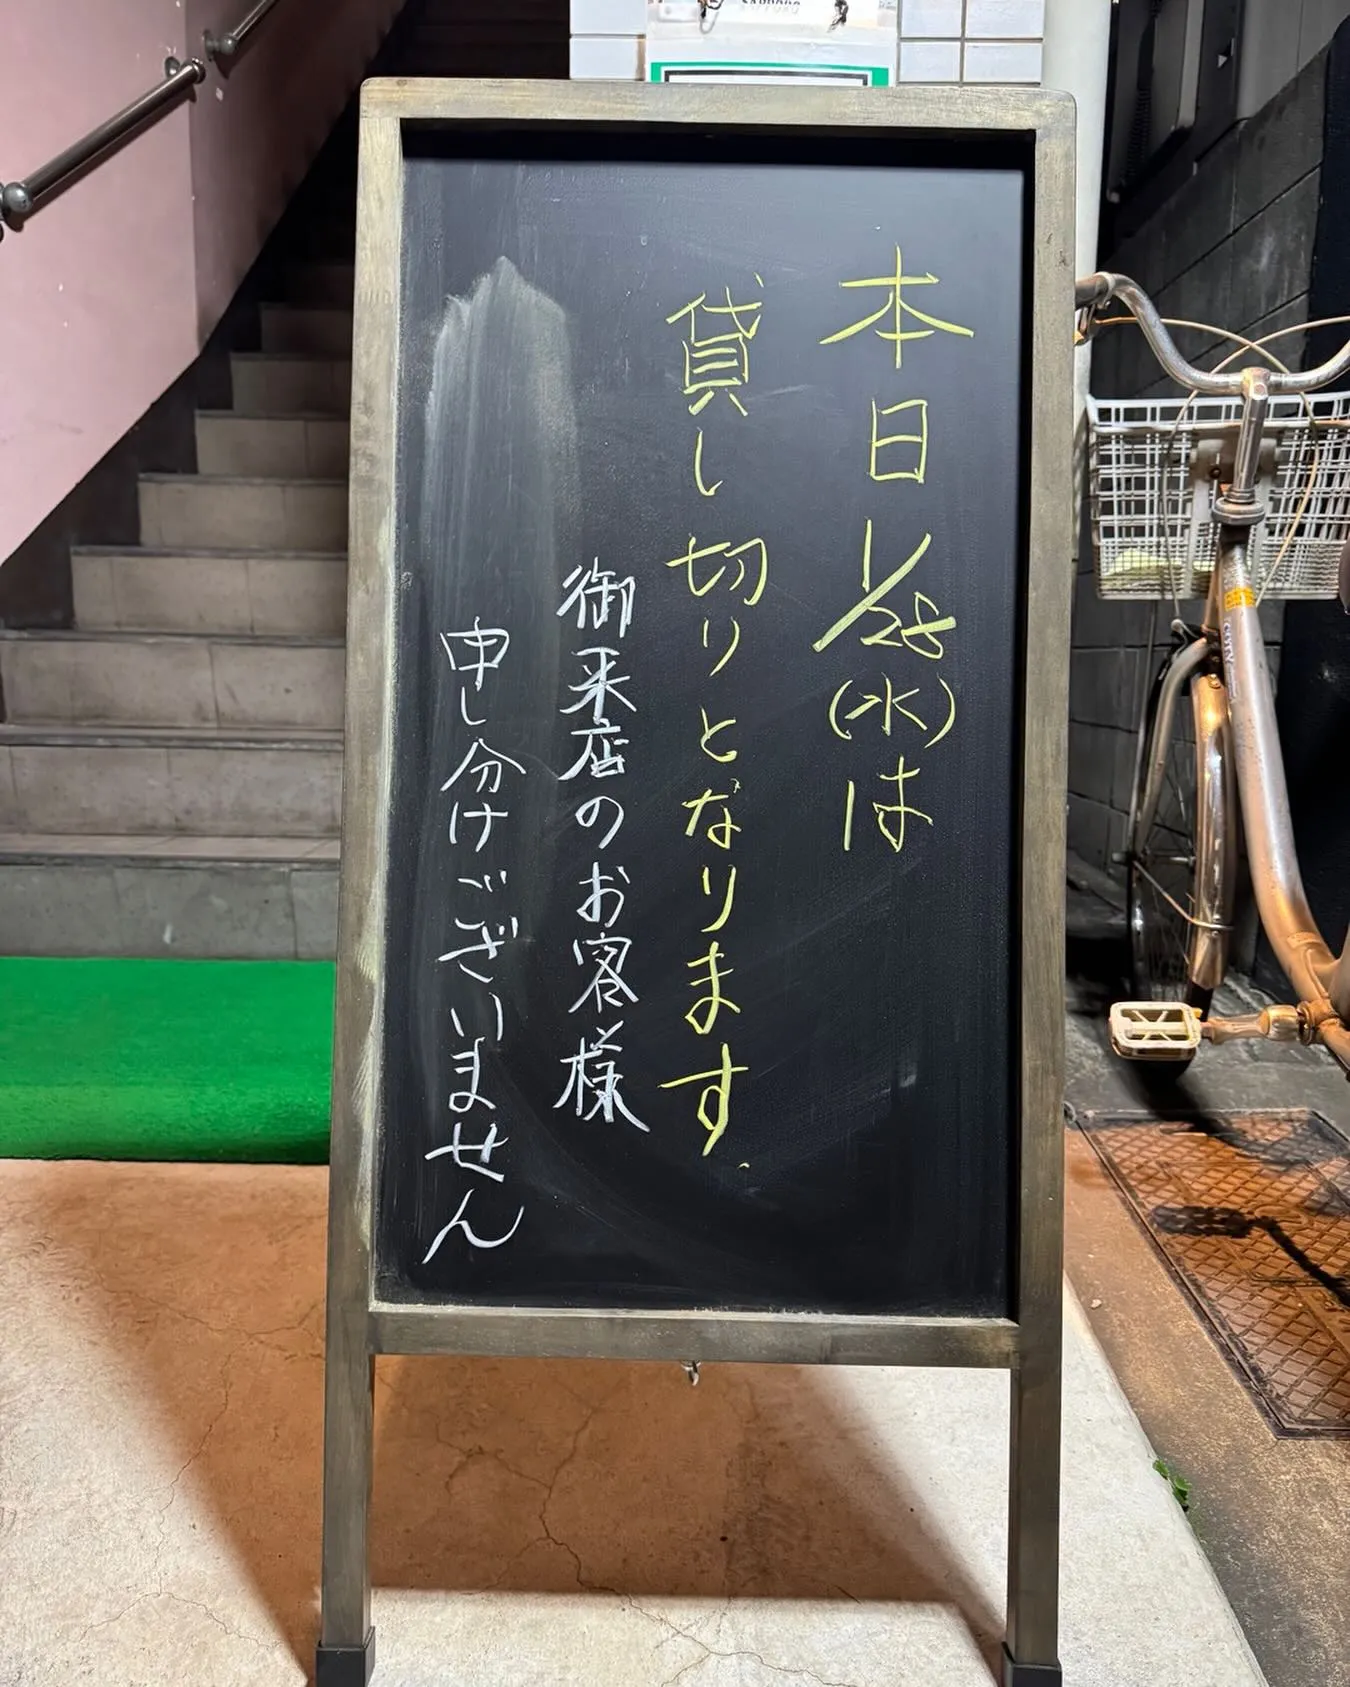 SAPPORO
本日1/28(水)は
貸し切りとなります.
御来店のお客様
申し分けございません